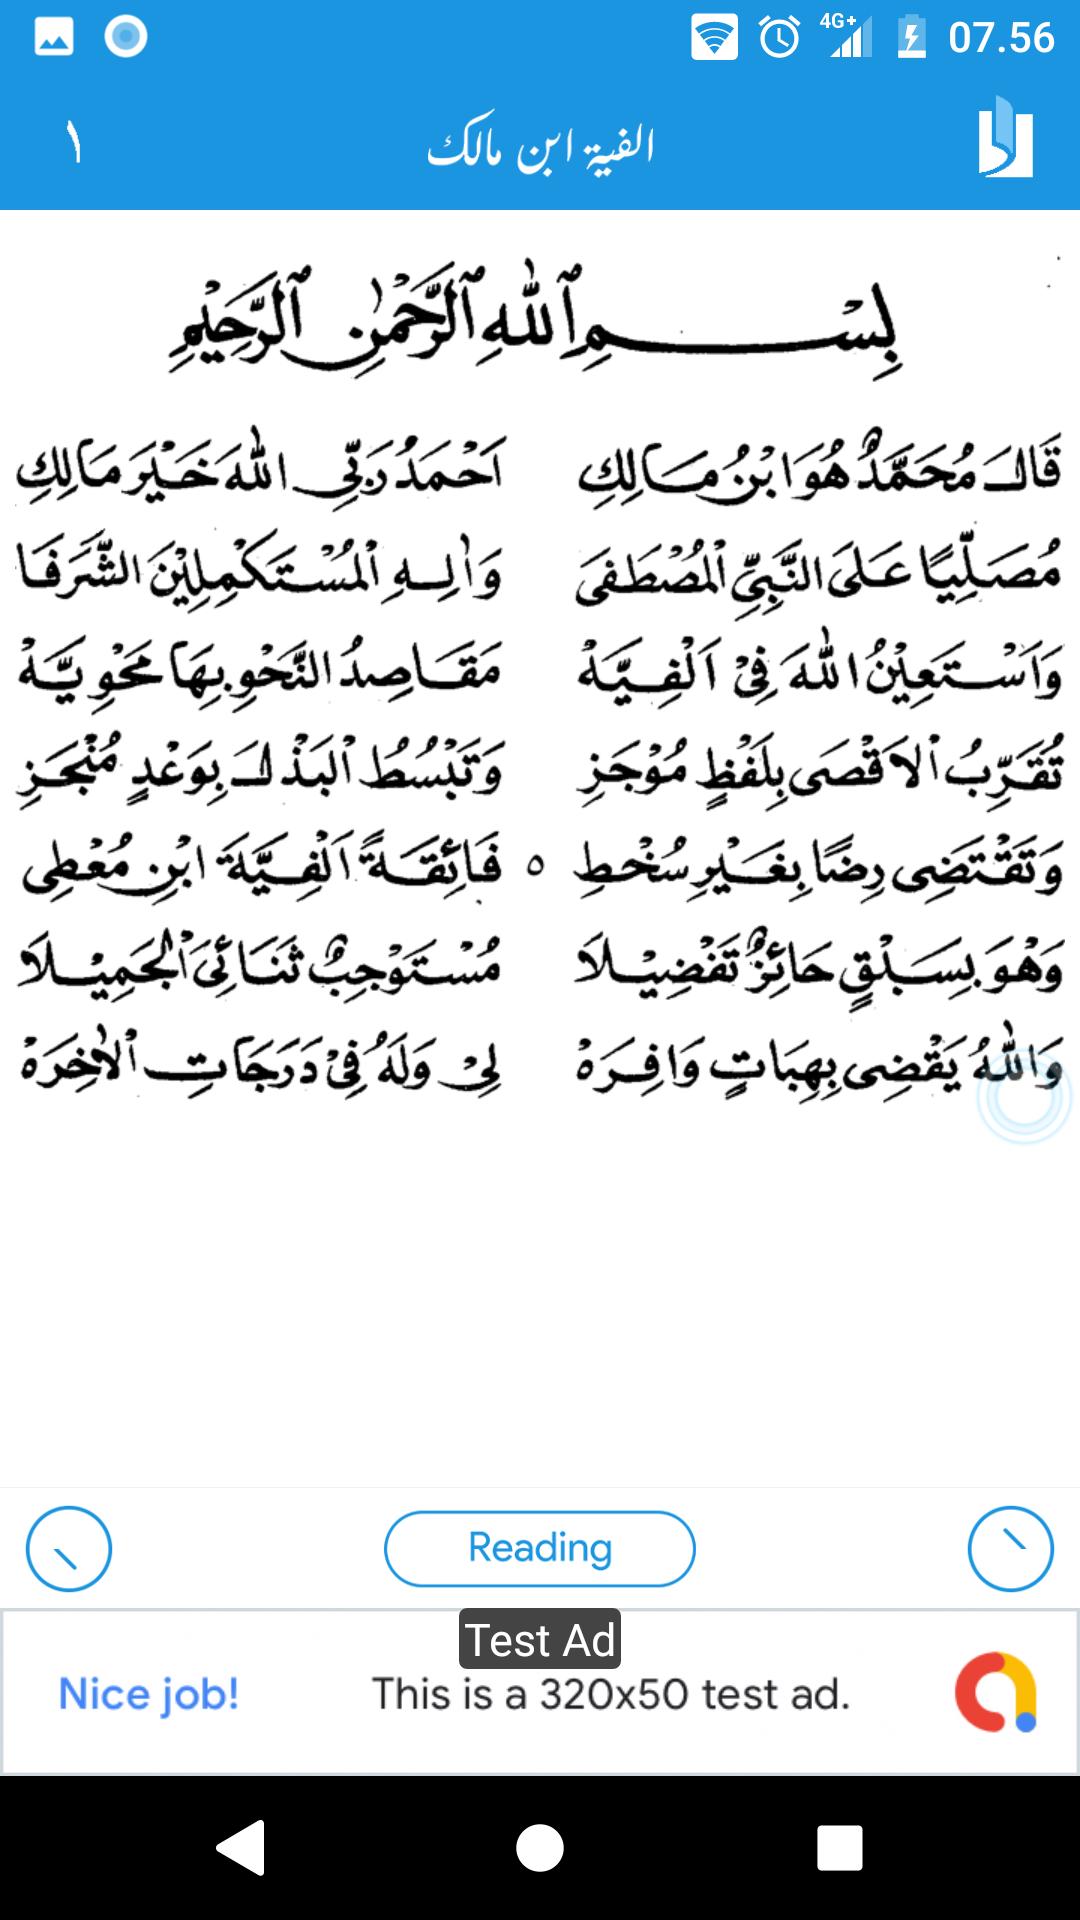 4G+ 07.56
١ الفية ابن مالك
بِسْمِ ٱللهِ ٱلرَّحْمٰنِ ٱلرَّحِيْمِ
قَالَ مُحَمَّدٌ هُوَ ابْنُ مَالِكِ اَحْمَدُ رَبِّى اللهَ خَيْرَ مَالِكِ
مُصَلِّيًا عَلَى النَّبِيِّ الْمُصْطَفَى وَاٰلِهِ الْمُسْتَكْمِلِيْنَ الشَّرَفَا
وَاَسْتَعِيْنُ اللهَ فِىْ اَلْفِيَّهْ مَقَاصِدُ النَّحْوِ بِهَا مَحْوِيَّهْ
تُقَرِّبُ الْاَقْصَى بِلَفْظٍ مُوْجَزِ وَتَبْسُطُ الْبَذْلَ بِوَعْدٍ مُنْجَزِ
وَتَقْتَضِى رِضًا بِغَيْرِ سُخْطِ ٥ فَائِقَةً اَلْفِيَّةَ ابْنِ مُعْطِى
وَهْوَ بِسَبْقٍ حَائِزٌ تَفْضِيْلَا مُسْتَوْجِبٌ ثَنَائِىَ الْجَمِيْلَا
وَاللهُ يَقْضِى بِهِبَاتٍ وَافِرَهْ لِىْ وَلَهُ فِىْ دَرَجَاتِ الْاٰخِرَهْ
Reading
Test Ad
Nice job! This is a 320x50 test ad.